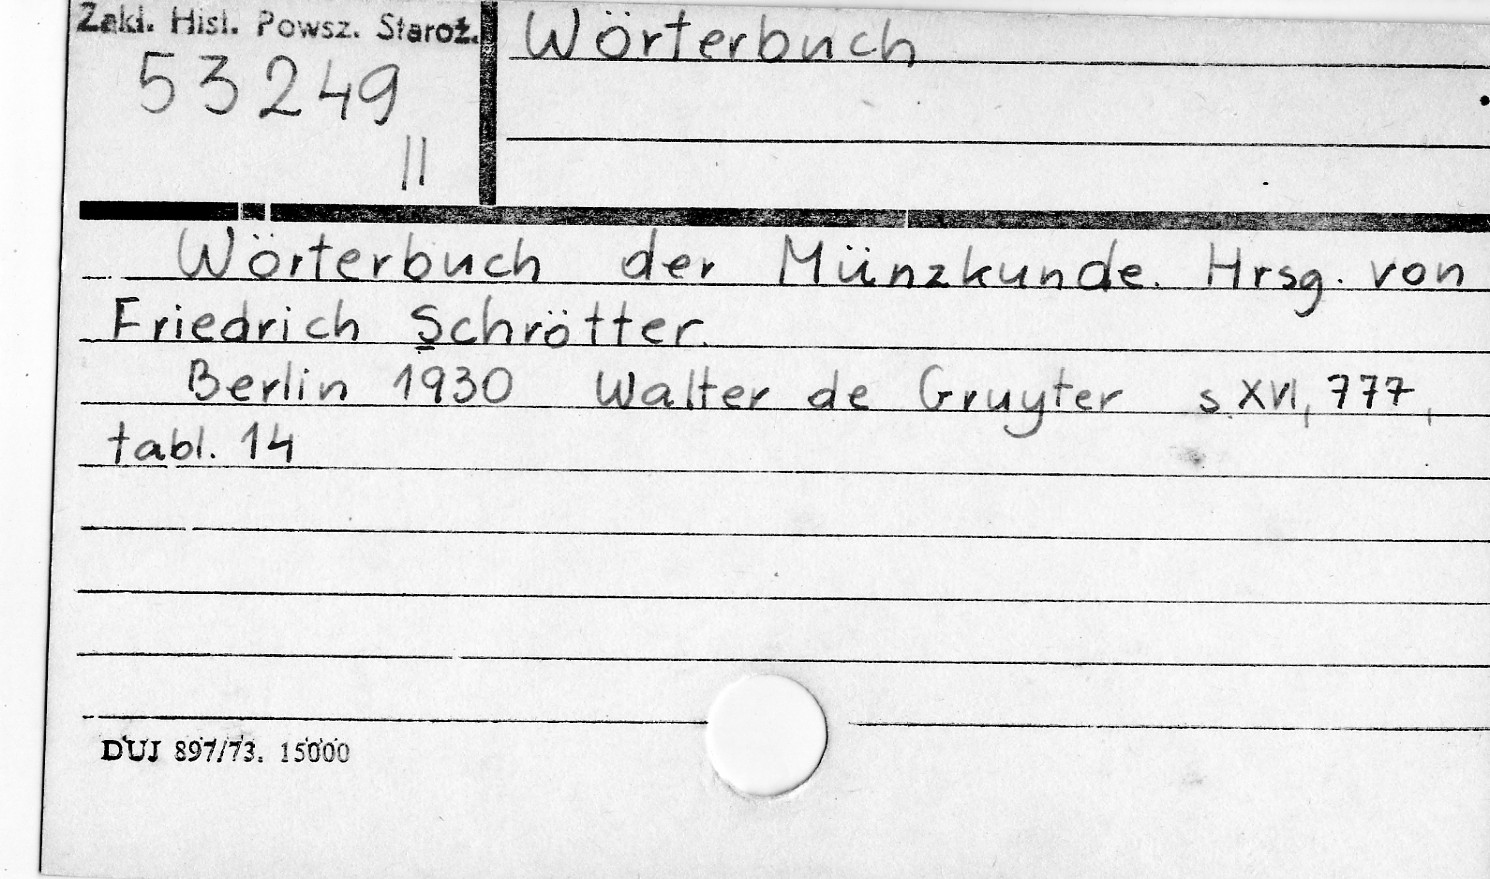 Zakł. Hist. Powsz. Staroż.
Wörterbuch
53249
II
Wörterbuch der Münzkunde. Hrsg. von
Friedrich Schrötter.
Berlin 1930 Walter de Gruyter s. XVI, 777,
tabl. 14
DUJ 897/73. 15000